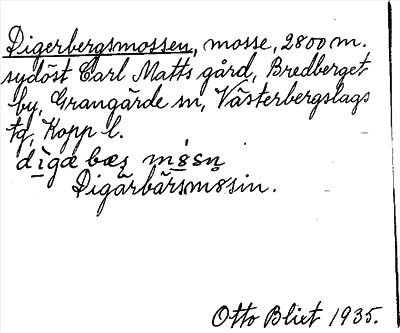 Digerbergsmossen, mosse, 2800 m.
sydöst Carl Matts gård, Bredberget
by, Grangärde sn, Västerbergslags
tg, Kopp l.
dìgæ bæș m8̀sn̥
Digärbärsm8sin.
Otto Blixt 1935.